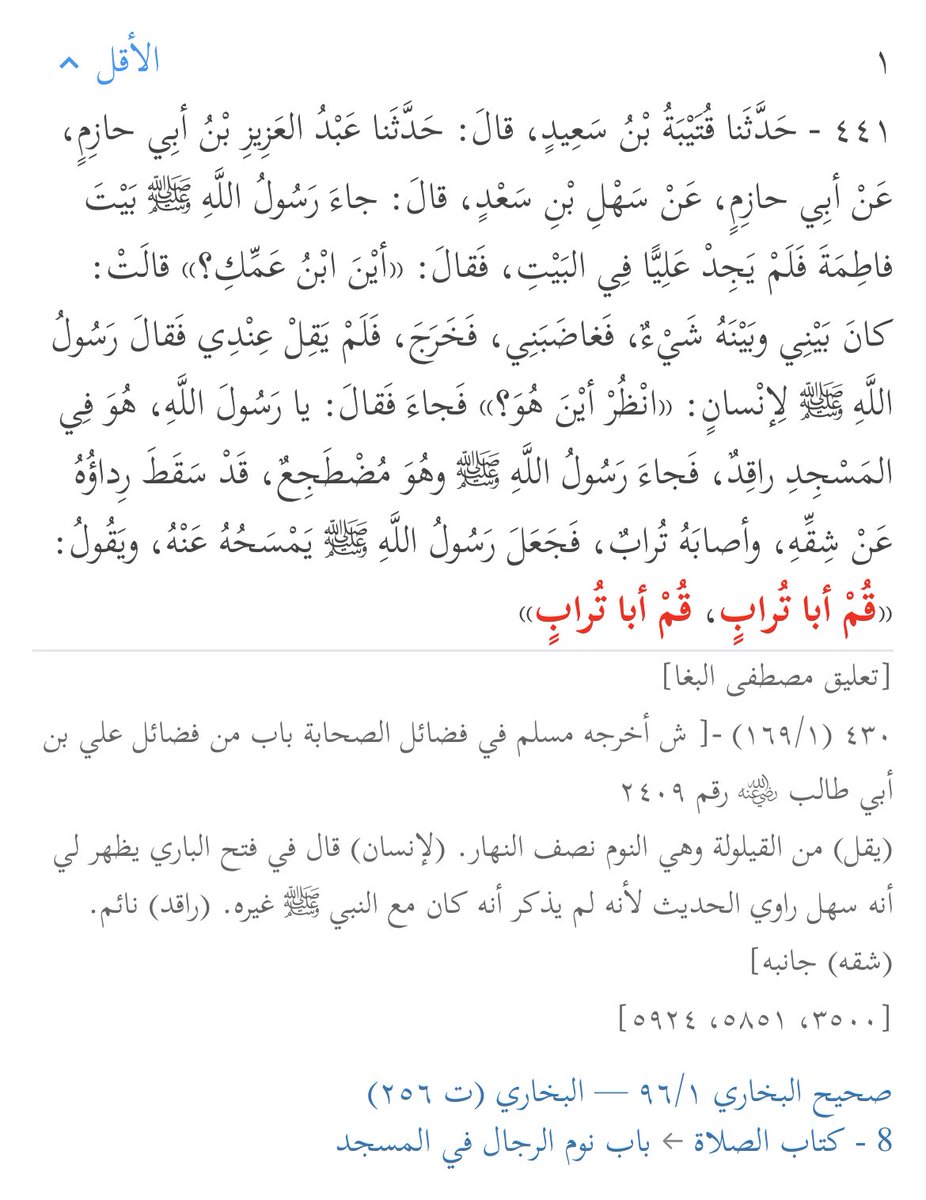 ١
الأقل
٤٤١ - حَدَّثَنا قُتَيْبَةُ بْنُ سَعِيدٍ، قالَ: حَدَّثَنا عَبْدُ العَزِيزِ بْنُ أبِي حازِمٍ،
عَنْ أبِي حازِمٍ، عَنْ سَهْلِ بْنِ سَعْدٍ، قالَ: جاءَ رَسُولُ اللَّهِ ﷺ بَيْتَ
فاطِمَةَ فَلَمْ يَجِدْ عَلِيًّا فِي البَيْتِ، فَقالَ: «أيْنَ ابْنُ عَمِّكِ؟» قالَتْ:
كانَ بَيْنِي وبَيْنَهُ شَيْءٌ، فَغاضَبَنِي، فَخَرَجَ، فَلَمْ يَقِلْ عِنْدِي فَقالَ رَسُولُ
اللَّهِ ﷺ لِإنْسانٍ: «انْظُرْ أيْنَ هُوَ؟» فَجاءَ فَقالَ: يا رَسُولَ اللَّهِ، هُوَ فِي
المَسْجِدِ راقِدٌ، فَجاءَ رَسُولُ اللَّهِ ﷺ وهُوَ مُضْطَجِعٌ، قَدْ سَقَطَ رِداؤُهُ
عَنْ شِقِّهِ، وأصابَهُ تُرابٌ، فَجَعَلَ رَسُولُ اللَّهِ ﷺ يَمْسَحُهُ عَنْهُ، ويَقُولُ:
«قُمْ أبا تُرابٍ، قُمْ أبا تُرابٍ»
[تعليق مصطفى البغا]
٤٣٠ (١/‏١٦٩) -[ ش أخرجه مسلم في فضائل الصحابة باب من فضائل علي بن
أبي طالب ﵁ رقم ٢٤٠٩
(يقل) من القيلولة وهي النوم نصف النهار. (لإنسان) قال في فتح الباري يظهر لي
أنه سهل راوي الحديث لأنه لم يذكر أنه كان مع النبي ﷺ غيره. (راقد) نائم.
(شقه) جانبه]
[٣٥٠٠، ٥٨٥١، ٥٩٢٤]
صحيح البخاري ١/‏٩٦ — البخاري (ت ٢٥٦)
8 - كتاب الصلاة ← باب نوم الرجال في المسجد